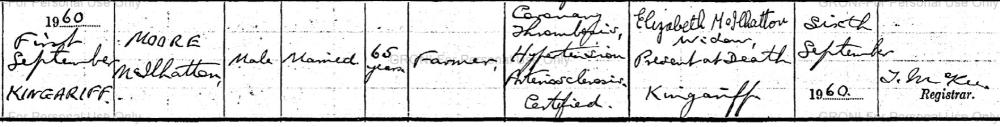 1960
First
September
KINGARIFF.
MOORE
McIlhatton,
Male
Married
65
years
Farmer,
Coronary
Thrombosis,
Hypertension
Arteriosclerosis.
Certified.
Elizabeth McIlhatton
Widow,
Present at Death
Kingariff
Sixth
September
1960.
T. McKee
Registrar.